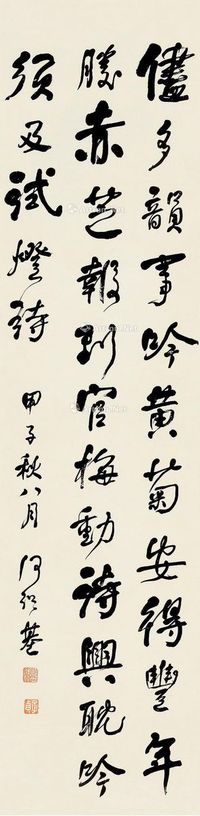 儘多韻事吟黃菊安得豐年
勝赤芝報到官梅動詩興耽吟
須及試燈詩
甲子秋八月 何紹基